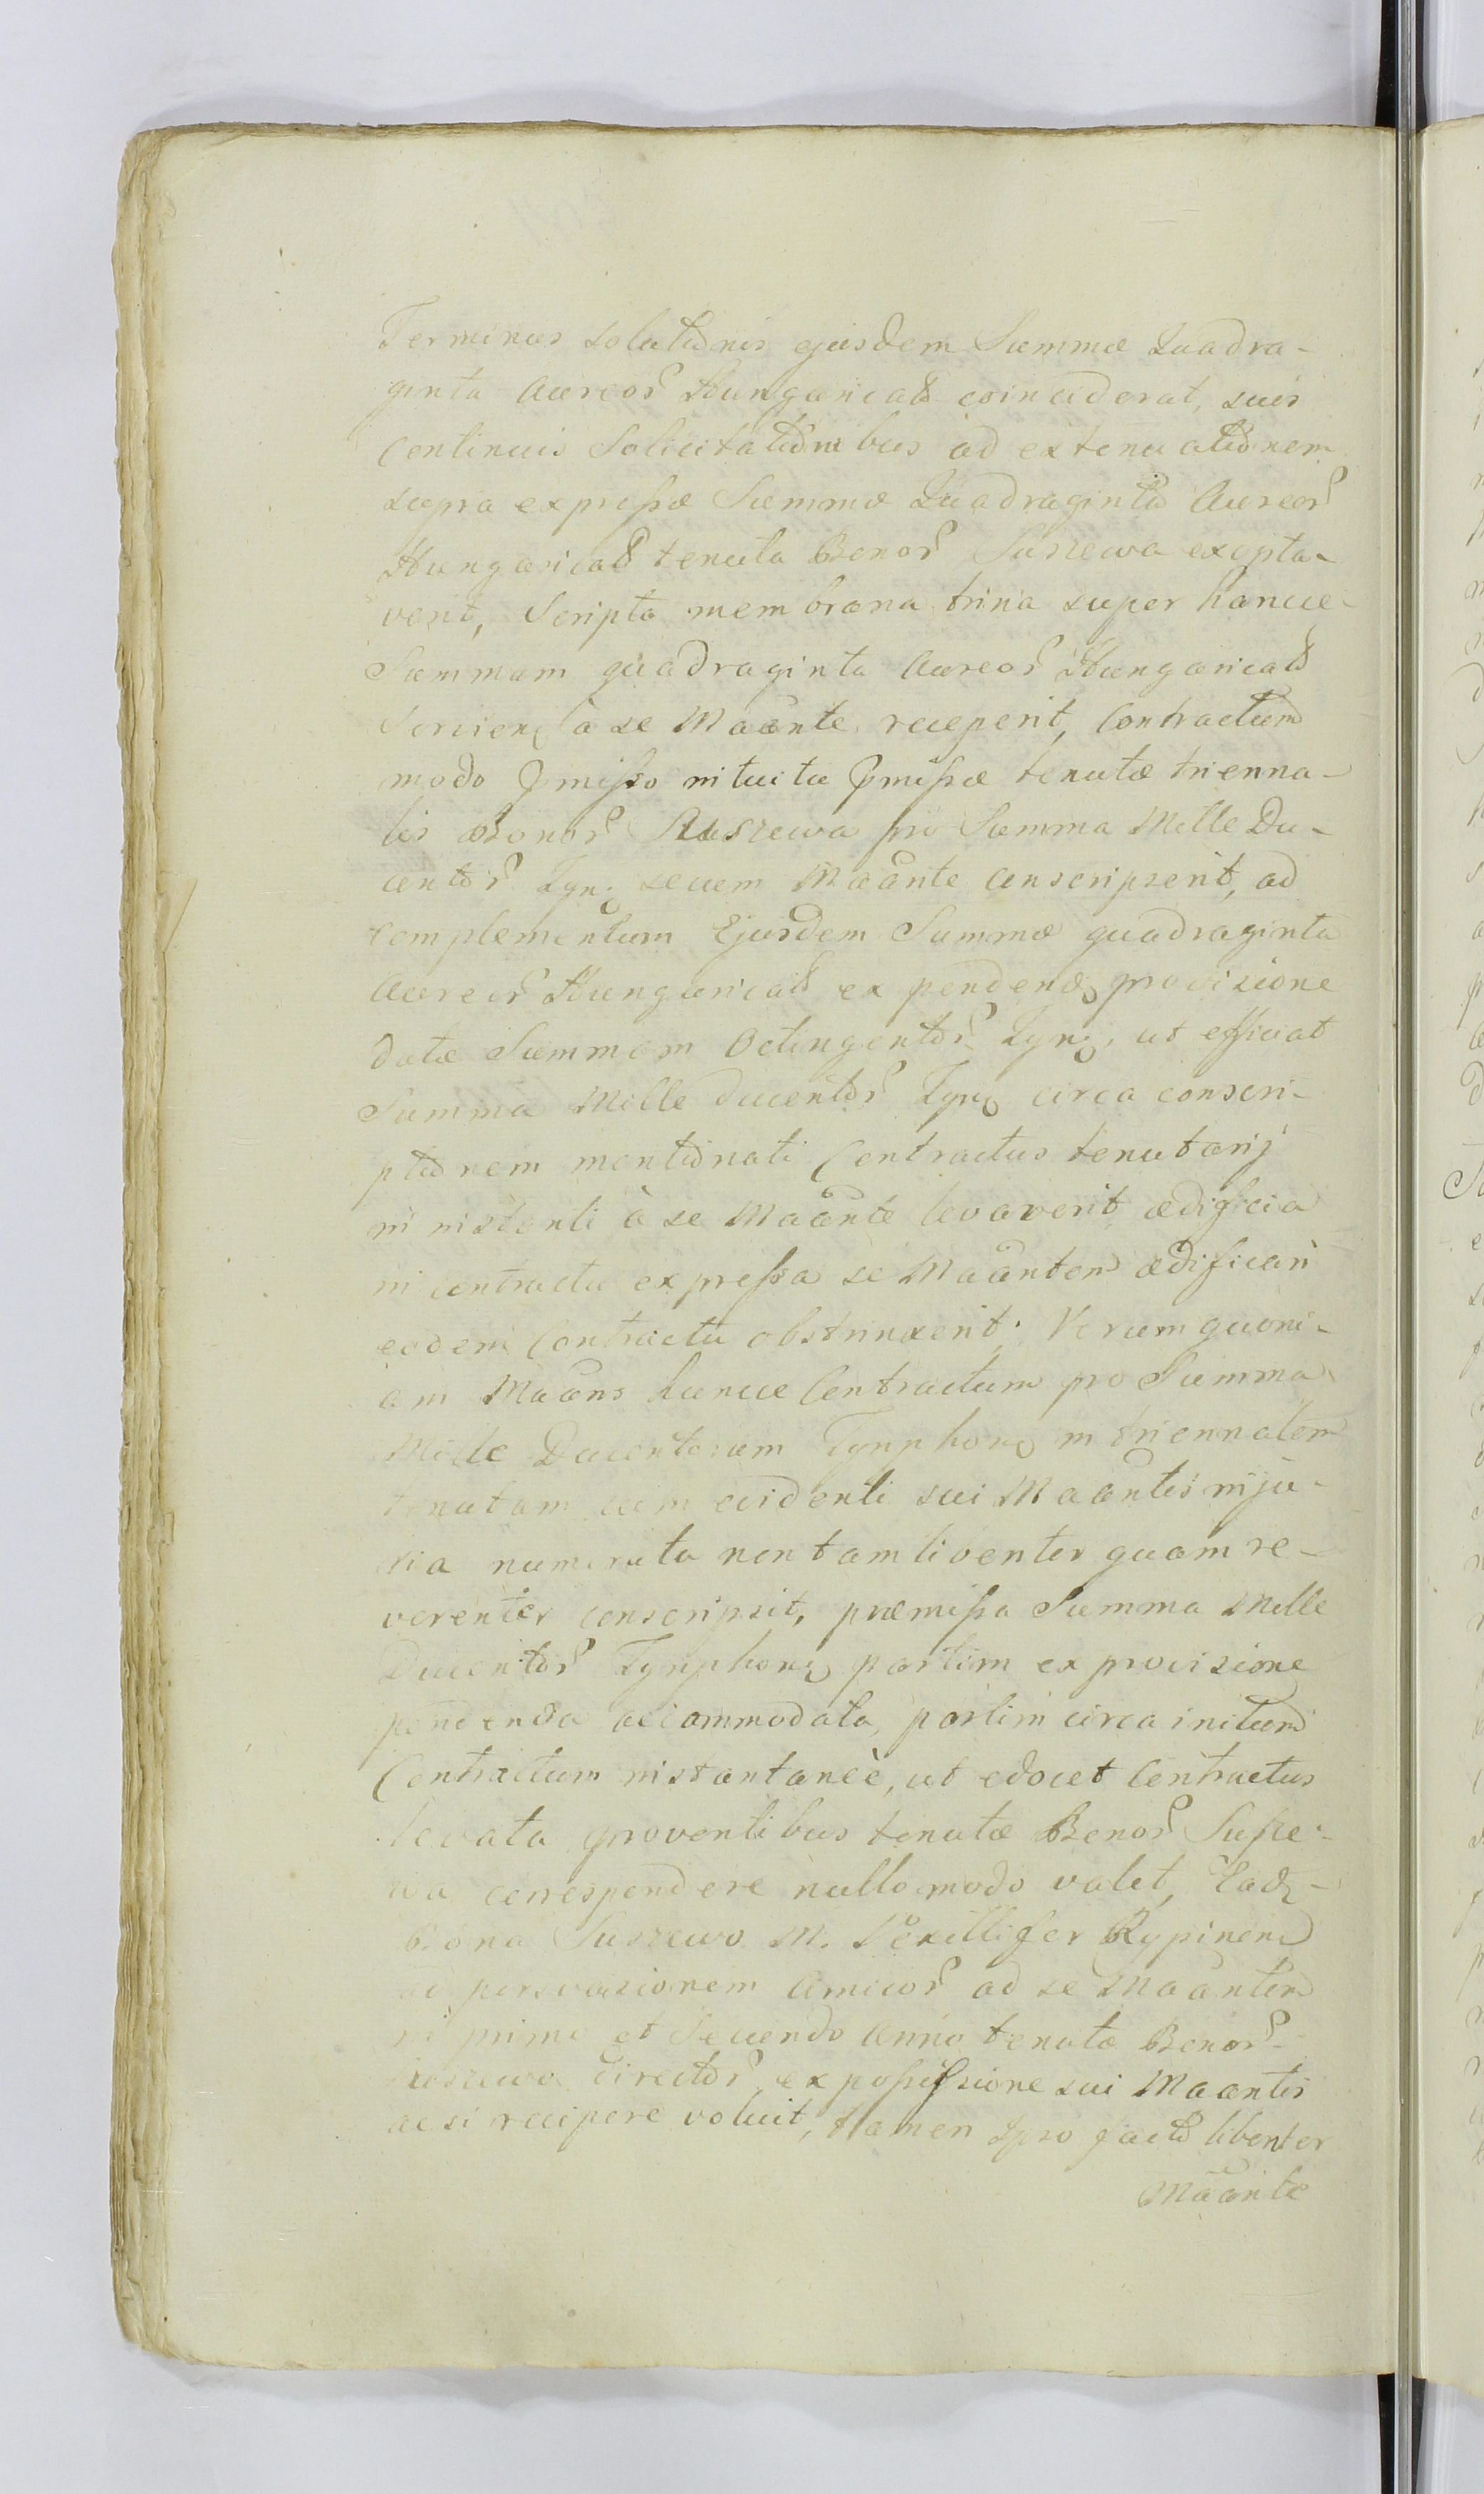 Terminus solutionis ejusdem Summæ Quadra-
ginta Aureor Hungaricali coinciderat, suis
Continuis Solicitationibus ad extenuationem
supra expressæ Summæ Quadraginta Aureor
Hungarical tenuta Bonor Suszewa exopta-
verit, Scripta membrana trina super hancce
Summam quadraginta Aureor Hungarical
Servien à se Maante receperit, Contractum
modo pmisso intuitu pmissæ tenutæ trienna-
lis Bonor Suszewa pro Summa Mille Du-
centor Tyn. secum Maante conscripserit, ad
complementum Ejusdem Summæ quadraginta
Aureor Hungarical ex pendend provisione
datæ Summam Octingentor Tyn, ut efficiat
Summa Mille ducentor Tyn circa conscri-
ptionem mentionati Contractus tenutarij
in instanti à se Maante levaverit, ædificia
in contractu expressa se Maantem ædificari
eodem Contractu obstrinxerit. Verum quoni-
am Maans huncce Contractum pro Summa
Mille Ducentorum Tynphon in triennalem
tenutam cum evidenti sui Maantis inju-
ria numerata non tam libenter quam re-
verenter conscripsit, præmissa Summa Mille
Ducentor Tynphon partim ex provisione
pendenda accommodata, partim circa initum
Contractum instantanèe, ut edocet Contractus
levata proventibus tenutæ Bonor Susze-
wa correspondere nullo modo valet, Ead
Bona Suszewo M. Vexillifer Rypinen
ad persvasionem Amicor ad se Maantem
in primo et Secundo Anno tenutæ Bonor
Suszewo director, ex possessione sui Maantis
acsi recipere voluit, tamen Ipso facto libenter
Maante